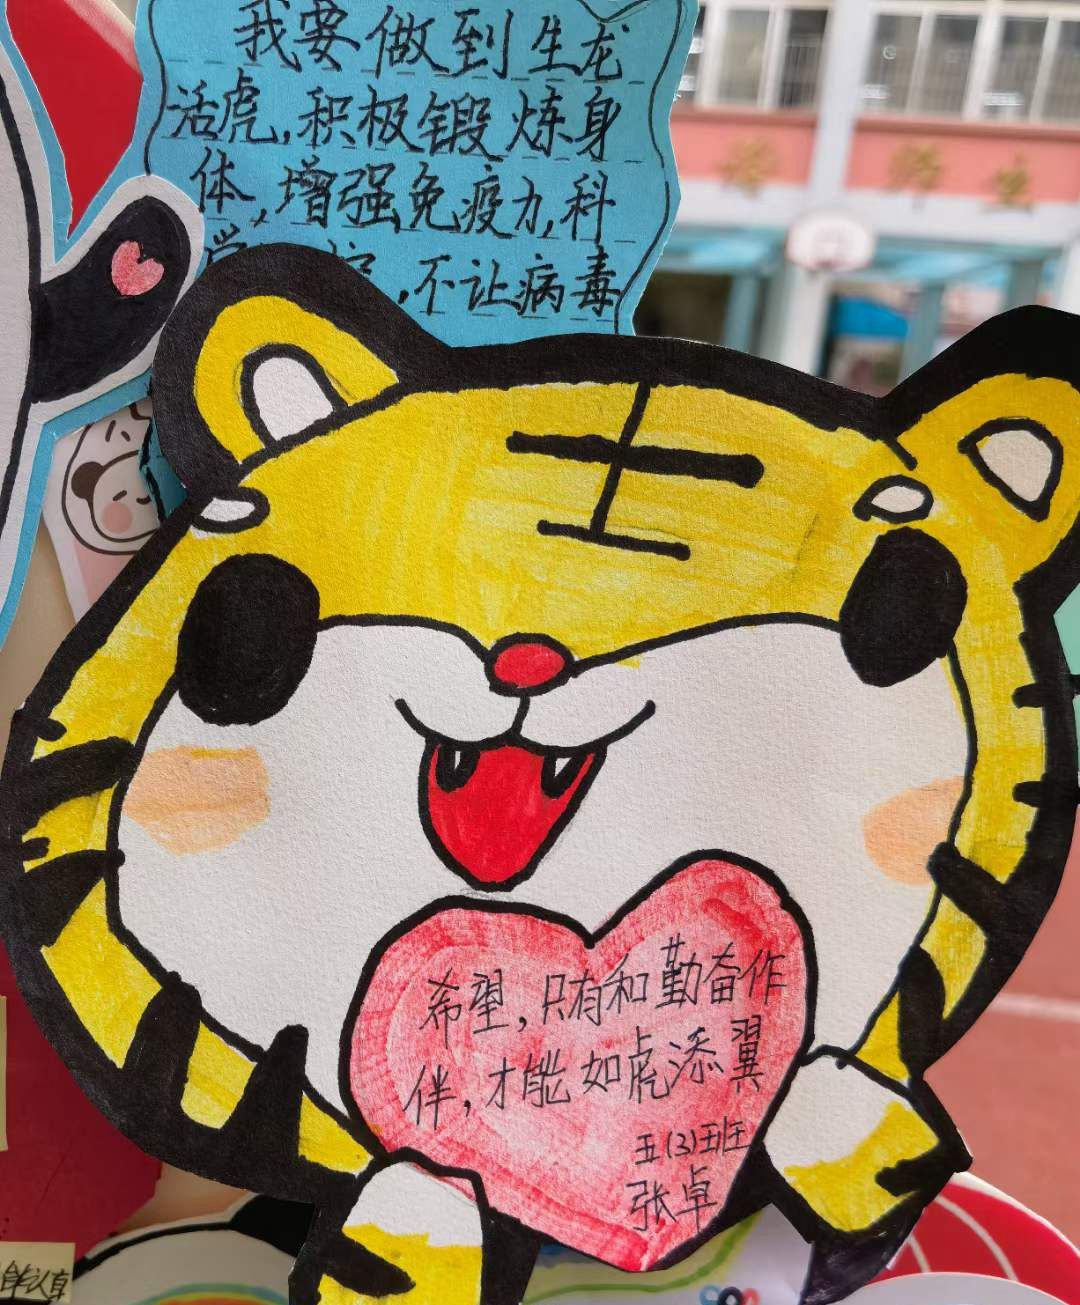 我要做到生龙
活虎,积极锻炼身
体,增强免疫力,科
学 ,不让病毒
士
希望,只有和勤奋作
伴,才能如虎添翼
五(3)班
张卓
认真